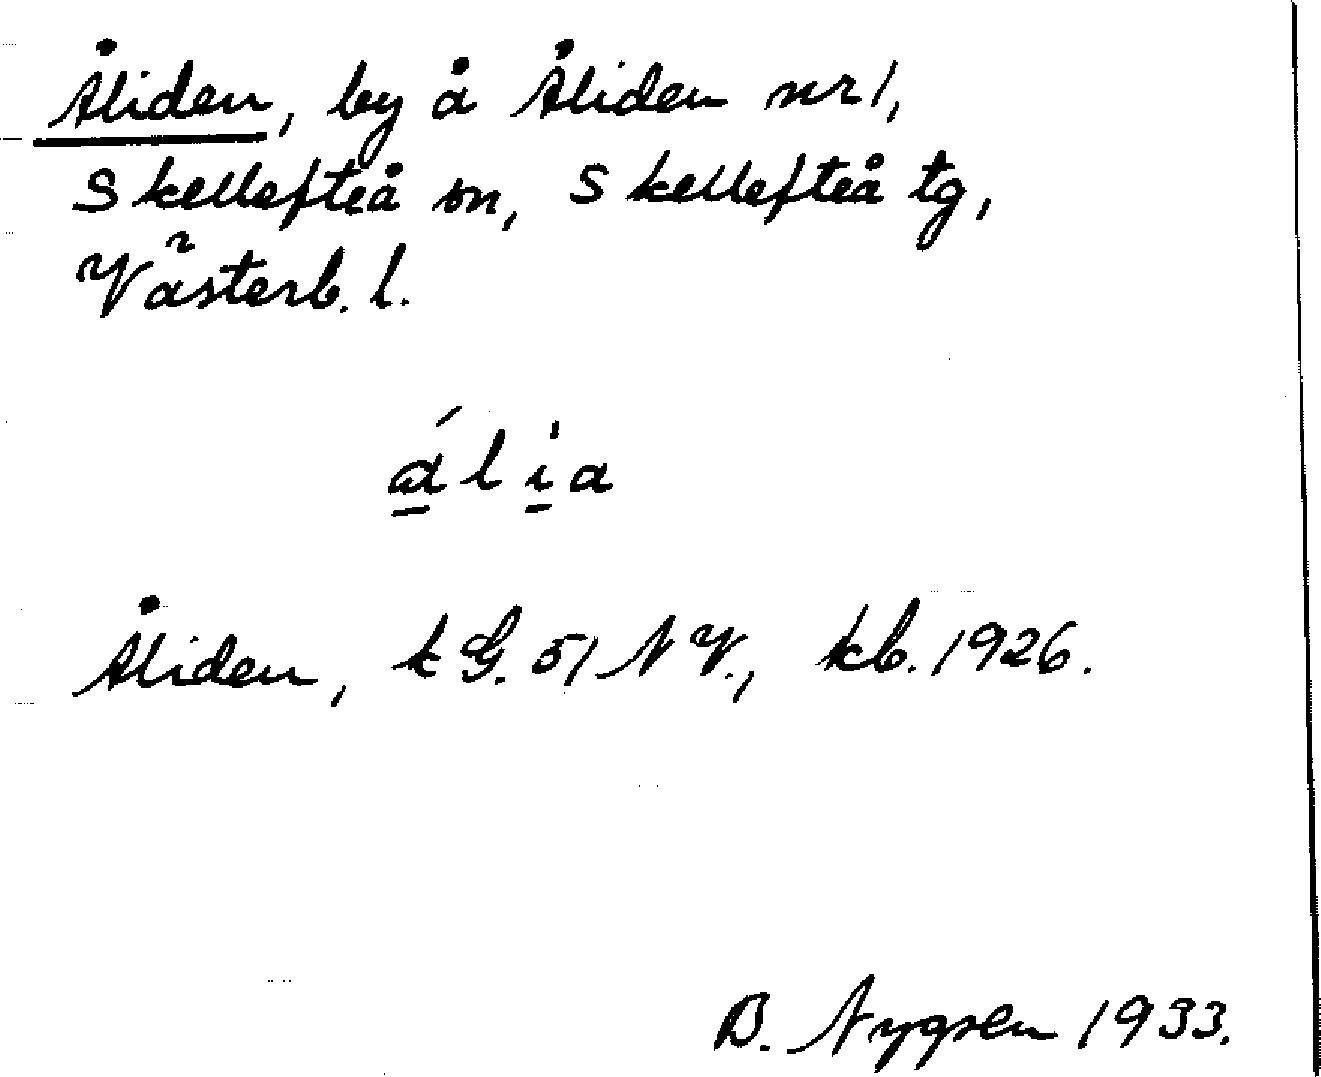 Åliden, by å Åliden nr 1,
Skellefteå sn, Skellefteå tg,
Västerb. l.
á̱li̱a
Åliden, k G. 51 NV., kb. 1926.
B. Nygren 1933.